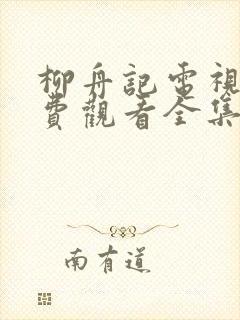 柳舟記電視
費觀看全集
南有道